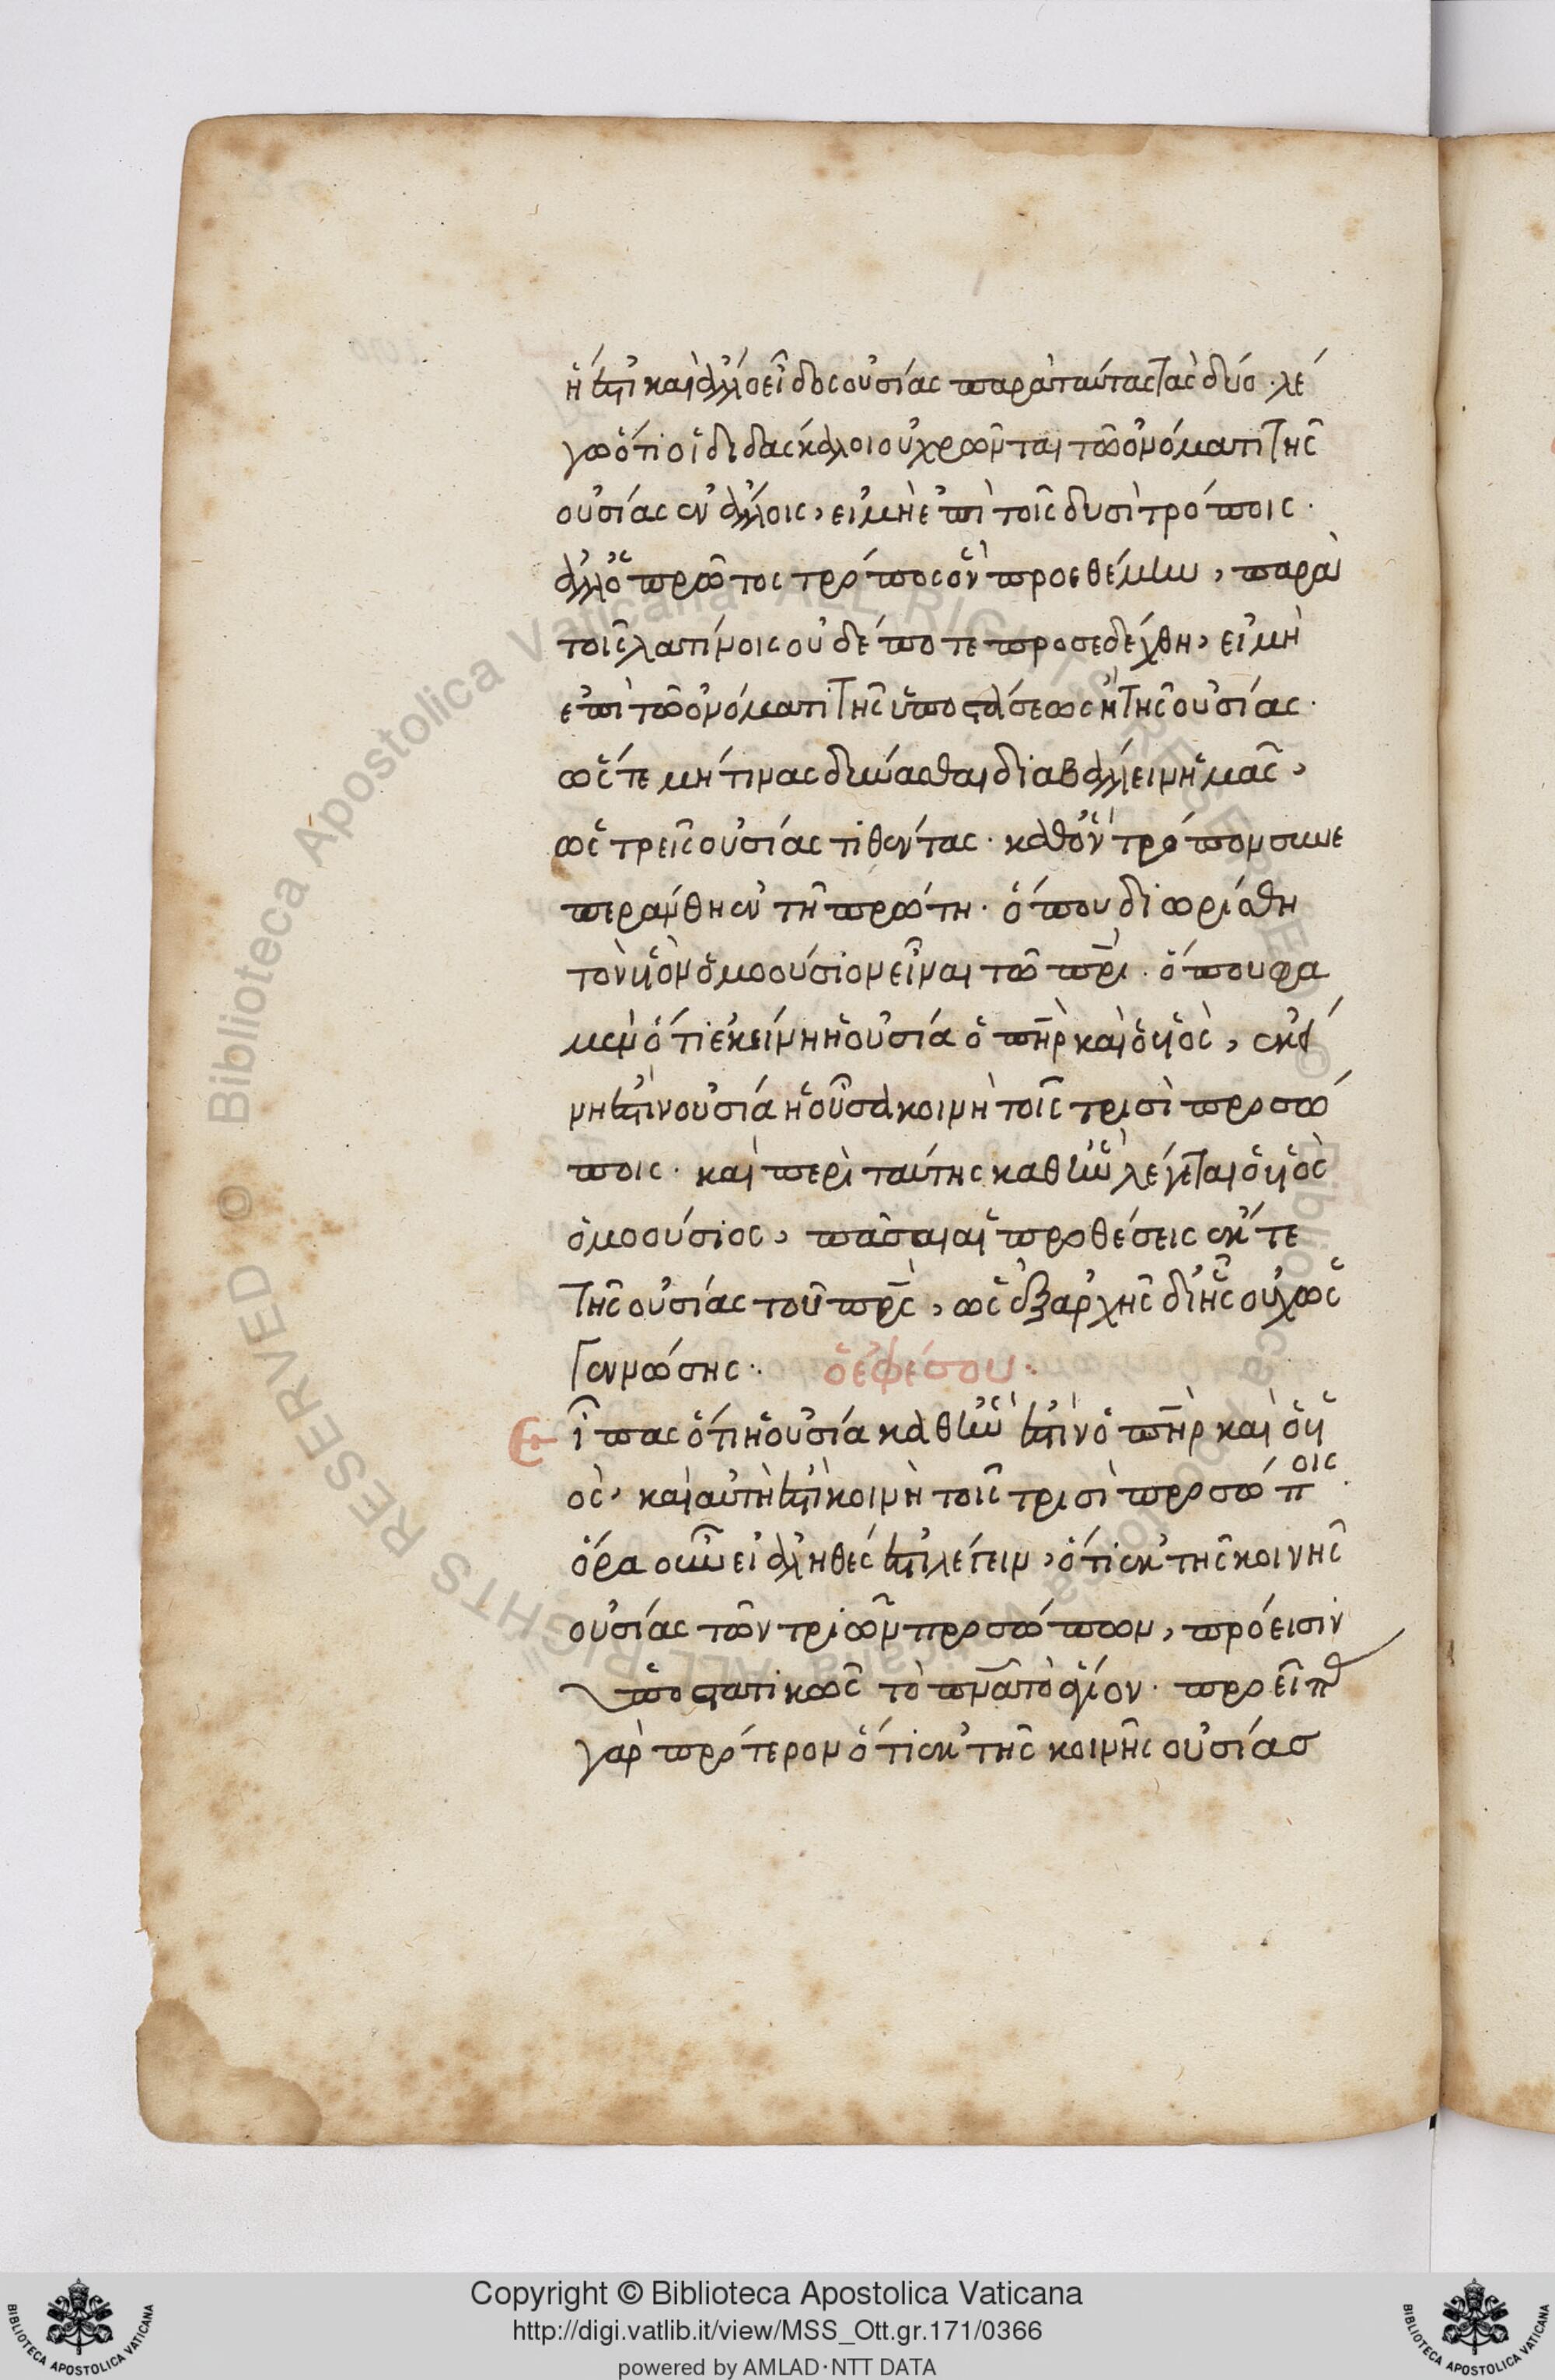 ἤ ἐστι καὶ ἄλλο εἶδος οὐσίας παρὰ ταύτας τὰς δύο · λέ
γω ὅτι οἱ διδάσκαλοι οὐ χρῶνται τῶ ὀνόματι τῆς
οὐσίας ἐν ἄλλοις, εἰ μὴ ἐπὶ τοῖς δυσὶ τρόποις ·
ἀλλ' ὁ πρῶτος τρόπος ὃν προεθέμην, παρὰ
τοῖς λατίνοις οὐδέποτε προσεδέχθη, εἰ μὴ
ἐπὶ τῶ ὀνόματι τῆς ὑποστάσεως ἢ τῆς οὐσίας ·
ὥστε μή τινας δύνασθαι διαβάλλειν ἡμᾶς,
ὡς τρεῖς οὐσίας τιθέντας · καθ' ὃν τρόπον συνε
περάνθη ἐν τῆ πρώτη · ὅπου διωρίσθη
τὸν υἱὸν ὁμοούσιον εἶναι τῶ πρι · ὅπου φα
μεν ὅτι ἐκείνη ἡ οὐσία ὁ πηρ καὶ ὁ υἱὸς, ἐκεί
νη ἐστὶν οὐσία ἡ οὖσα κοινὴ τοῖς τρισὶ προσώ
ποις · καὶ περὶ ταύτης καθ' ἣν λέγεται ὁ υἱὸς
ὁμοούσιος, πᾶσαι αἱ προθέσεις ἔκ τε
τῆς οὐσίας τοῦ πρς, ὡς ἐξ ἀρχῆς δι' ἧς οὐχ ὡς
γεννώσης · ὁ ἐφέσου ·
Εἶπας ὅτι ἡ οὐσία καθ' ἣν ἐστὶν ὁ πηρ καὶ ὁ υἱ
ὸς, καὶ αὐτὴ ἐστὶ κοινὴ τοῖς τρισὶ προσώποις ·
ὅρα οὖν εἰ ἀληθές ἐστι λέγειν, ὅτι ἐκ τῆς κοινῆς
οὐσίας τῶν τριῶν προσώπων, πρόεισιν
ὑποστατικῶς τὸ πνα τὸ ἅγιον · προεῖπας
γὰρ πρότερον ὅτι ἐκ τῆς κοινῆς οὐσίας
Copyright © Biblioteca Apostolica Vaticana
http://digi.vatlib.it/view/MSS_Ott.gr.171/0366
powered by AMLAD·NTT DATA